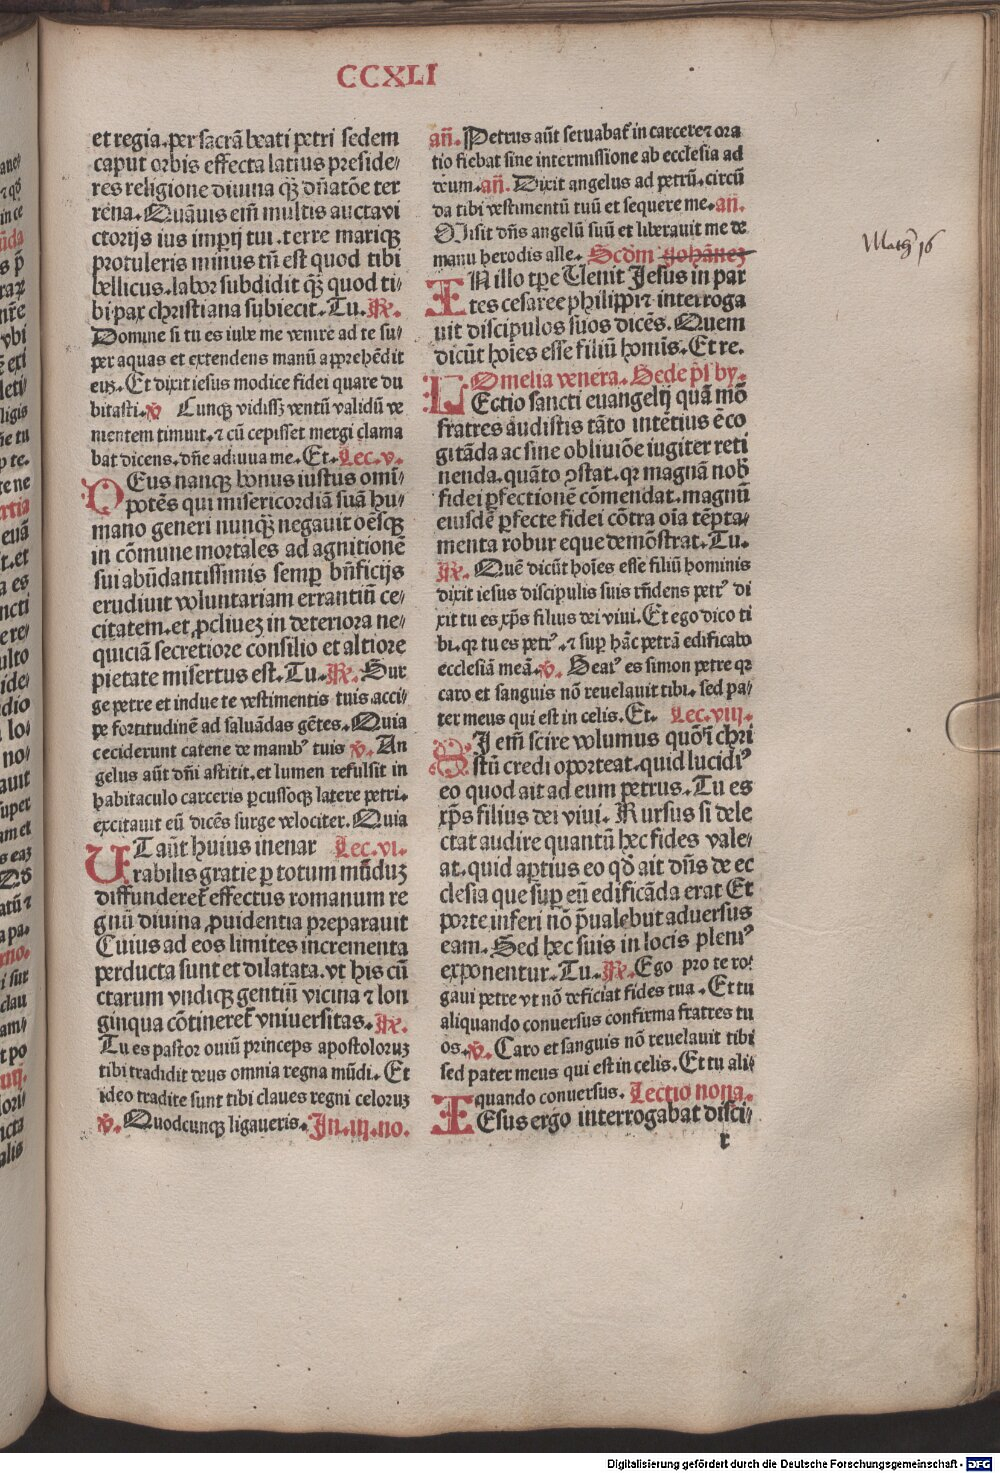 CCXLI
et regia.per sacrā beati petri sedem
caput orbis effecta latius preside⸗
res religione diuina qʒ dn̄atōe ter
rena. Quāuis em̄ multis aucta vi
ctorijs ius imperij tui.terre mariqʒ
protuleris minus tn̄ est quod tibi
bellicus.labor subdidit qʒ quod ti⸗
bi pax christiana subiecit.Tu. ℟.
Domine si tu es iube me venire ad te su⸗
per aquas et extendens manū apprehēdit
eūʒ. Et dixit iesus modice fidei quare du
bitasti. ℣ Cunqʒ vidissʒ ventū validū ve
nientem timuit.⁊ cū cepisset mergi clama
bat dicens.dn̄e adiuua me. Et. Lec.v.
DEus nanqʒ bonus iustus omī⸗
potēs qui misericordiā suā hu⸗
mano generi nunqʒ negauit oēsqʒ
in cōmune mortales ad agnitionē
sui abūdantissimis semꝑ bn̄ficijs
erudiuit voluntariam errantiū ce⸗
citatem.et ꝓcliueʒ in deteriora ne⸗
quiciā secretiore consilio et altiore
pietate misertus est.Tu. ℟. Sur
ge petre et indue te vestimentis tuis acci⸗
pe fortitudinē ad saluādas gētes. Quia
ceciderunt catene de manibꝰ tuis ℣. An
gelus aūt dn̄i astitit.et lumen refulsit in
habitaculo carceris ꝑcussoqʒ latere petri.
excitauit eū dicēs surge velociter. Quia
UT aūt huius inenar Lec.vi.
rabilis gratie ꝑ totum mūduʒ
diffunderet̄ effectus romanum re
gnū diuina ꝓuidentia preparauit
Cuius ad eos limites incrementa
perducta sunt et dilatata.vt his cū
ctarum vndiqʒ gentiū vicina ⁊ lon
ginqua cōtineret̄ vniuersitas. ℟.
Tu es pastor ouiū princeps apostoloruʒ
tibi tradidit deus omnia regna mūdi. Et
ideo tradite sunt tibi claues regni celoruʒ
℣. Quodcunqʒ ligaueris. In.iij.no.
an̄. Petrus aūt seruabat̄ in carcere⁊ ora
tio fiebat sine intermissione ab ecclesia ad
deum.an̄. Dixit angelus ad petrū.circū
da tibi vestimentū tuū et sequere me.an̄.
Misit dn̄s angelū suū et liberauit me de
manu herodis alle. Scdm Johānez
IN illo tpe Uenit Jesus in par
tes cesaree philippi⁊ interroga
uit discipulos suos dicēs. Quem
dicūt hoīes esse filiū homīs.Et re.
Omelia venera. Bede pſ̄bʏ.
LEctio sancti euangelij quā mō
fratres audistis tāto intētius ē co
gitāda ac sine obliuiōe iugiter reti
nenda.quāto ꝯstat.qꝛ magnā nob̄
fidei ꝑfectionē cōmendat.magnū
eiusdē ꝑfecte fidei cōtra oīa tēpta⸗
menta robur eque demōstrat.Tu.
℟. Quē dicūt hoīes esse filiū hominis
dixit iesus discipulis suis rn̄dens petrꝰ di
xit tu es xp̄s filius dei viui.Et ego dico ti
bi.qꝛ tu es petrꝰ.⁊ suꝑ hāc petrā edificabo
ecclesiā meā. ℣. Beatꝰ es simon petre qꝛ
caro et sanguis nō reuelauit tibi.sed pa⸗
ter meus qui est in celis.Et. Lec.viij.
SI em̄ scire volumus quō i chri
stū credi oporteat.quid lucidiꝰ
eo quod ait ad eum petrus.Tu es
xp̄s filius dei viui.Rursus si dele
ctat audire quantū hec fides vale⸗
at.quid aptius eo qd̄ ait dn̄s de ec
clesia que suꝑ eū edificāda erat Et
porte inferi nō p̄ualebūt aduersus
eam. Sed hec suis in locis pleniꝰ
exponentur.Tu. ℟. Ego pro te ro⸗
gaui petre vt nō deficiat fides tua. Et tu
aliquando conuersus confirma fratres tu
os. ℣. Caro et sanguis nō reuelauit tibi
sed pater meus qui est in celis. Et tu ali⸗
quando conuersus. Lectio nona.
IEsus ergo interrogabat disci⸗
r
Math 16
Digitalisierung gefördert durch die Deutsche Forschungsgemeinschaft - DFG